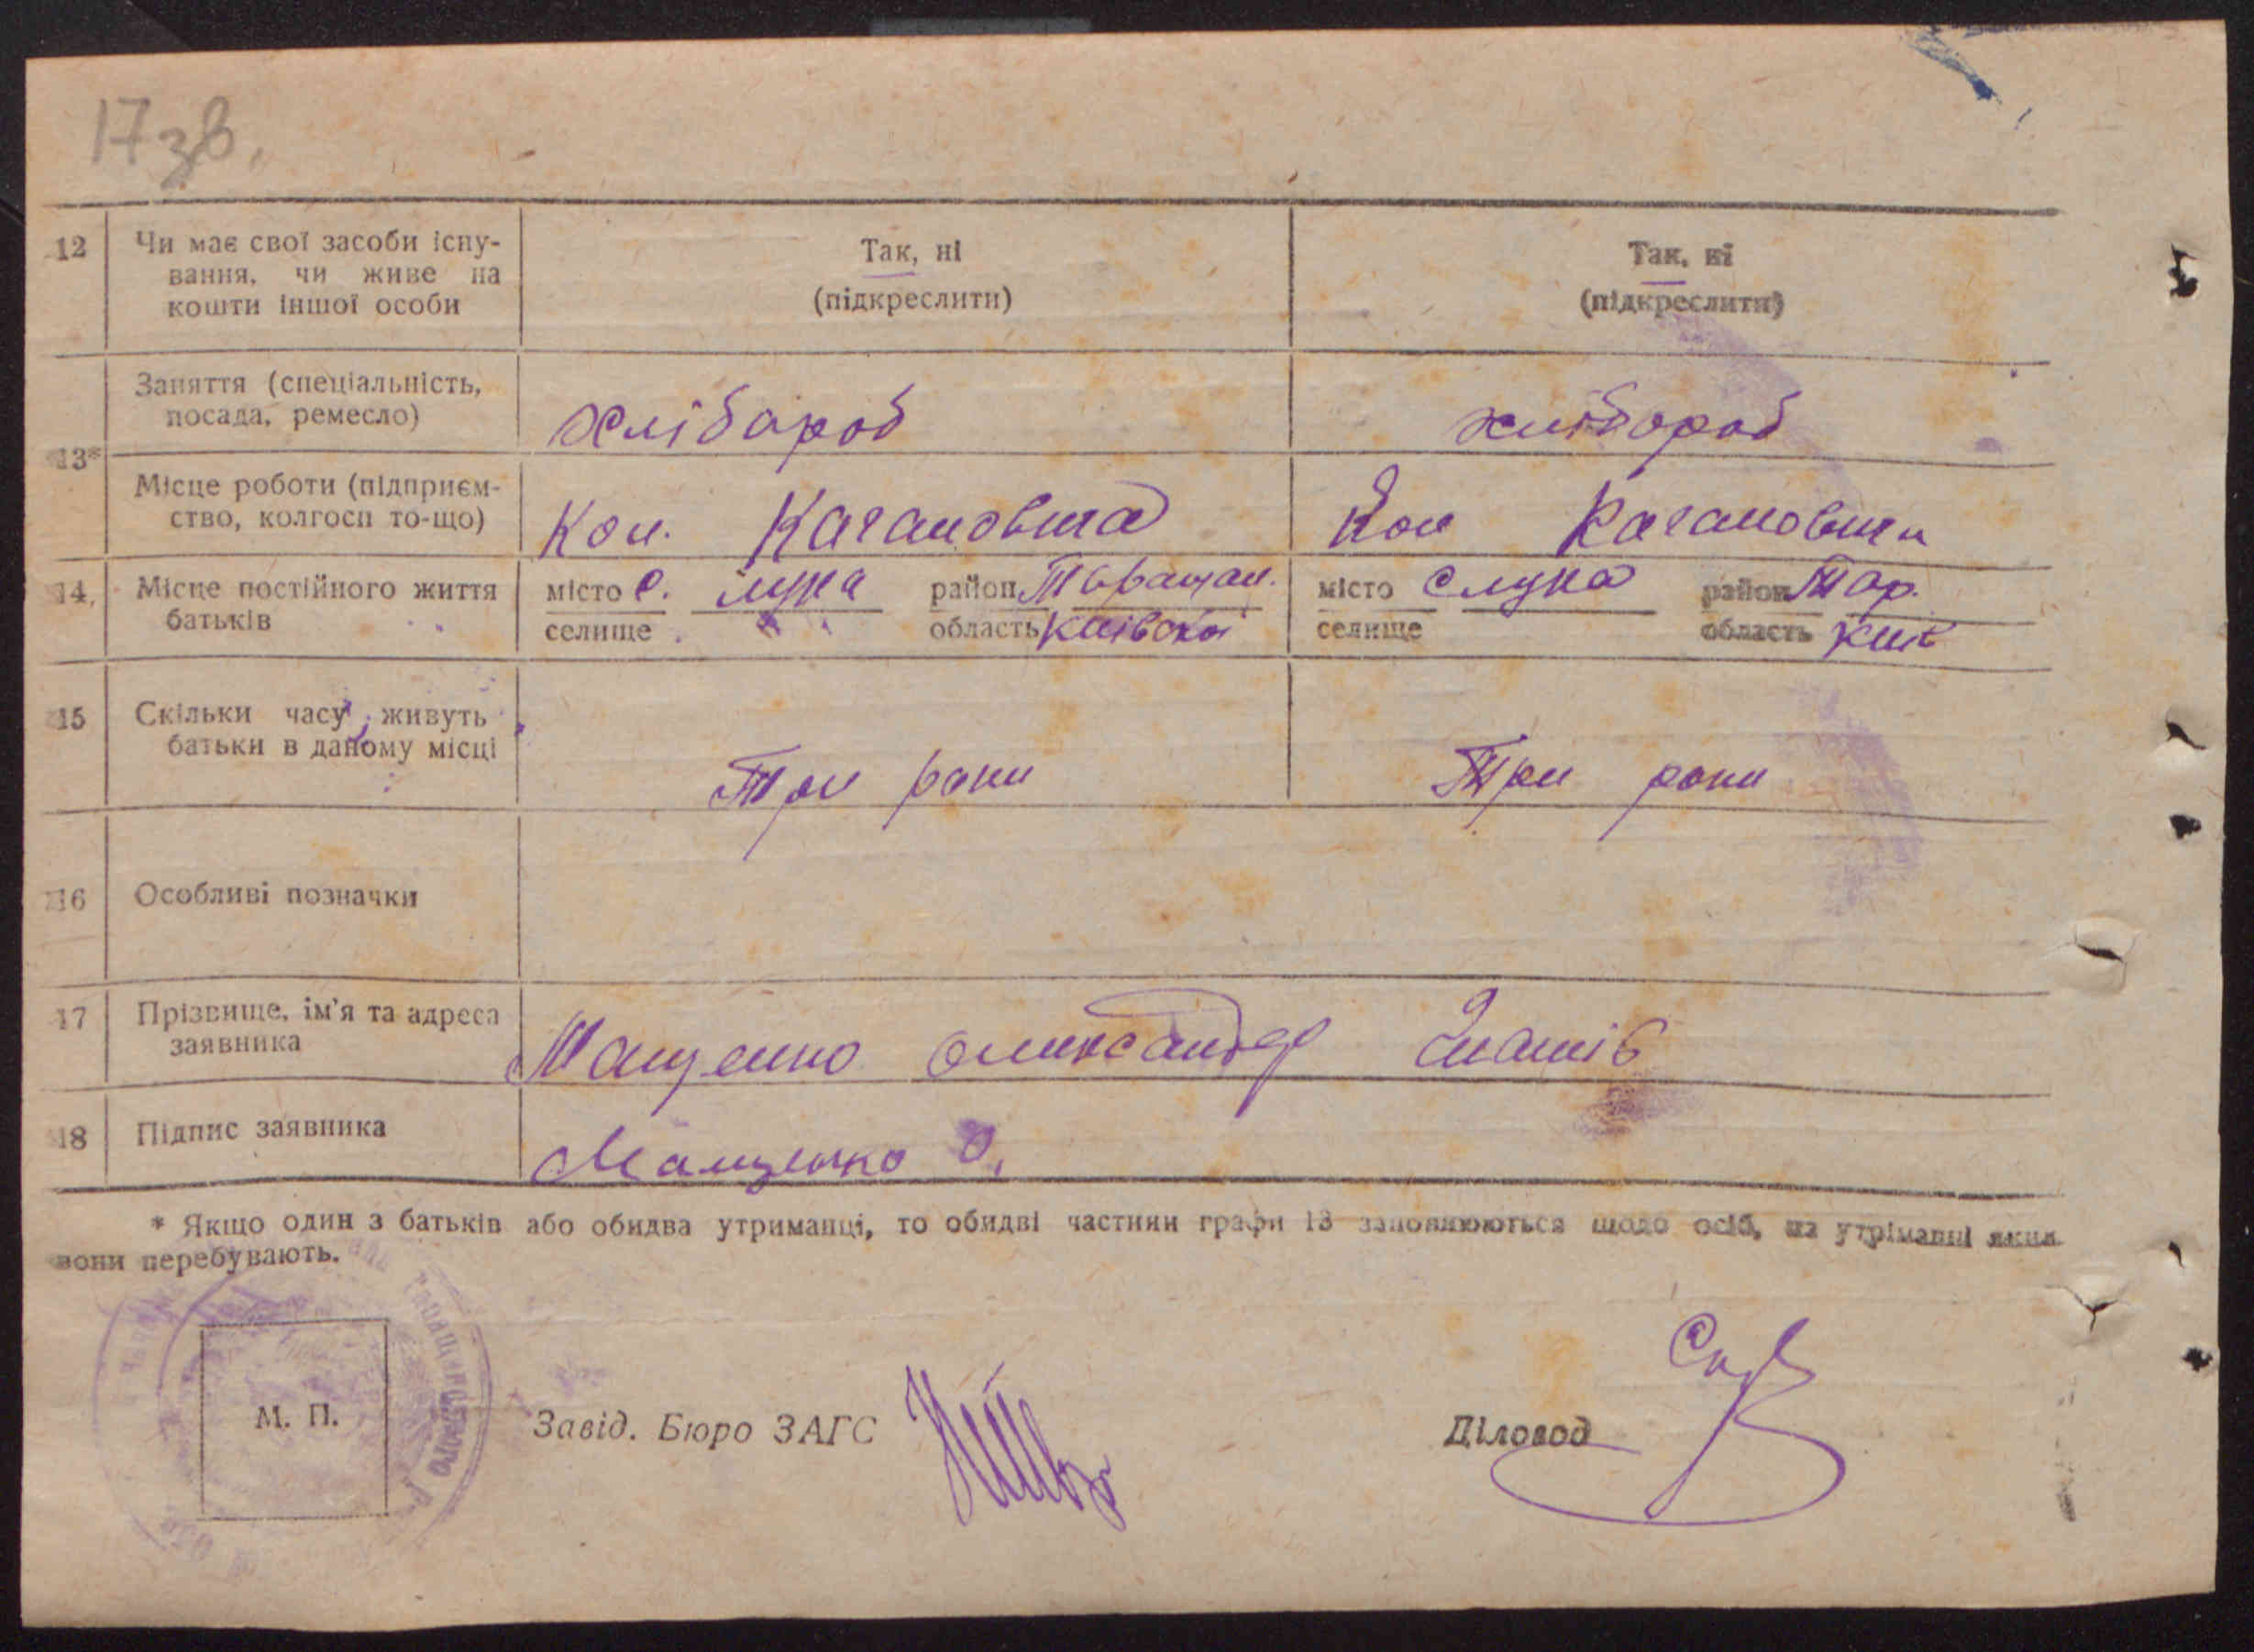 17 зв.
12 Чи має свої засоби існу- Так, ні Так, ні
вання, чи живе на (підкреслити) (підкреслити)
кошти іншої особи
Заняття (спеціальність,
посада, ремесло) хлібороб хлібороб
13*
Місце роботи (підприєм-
ство, колгосп то-що) Кол. Кагановича Кол Кагановича
14, Місце постійного життя місто с. Лука район Таращан. місто с Лука район Тар.
батьків селище область Київська селище область Київ
15 Скільки часу живуть
батьки в даному місці Три роки Три роки
16 Особливі позначки
17 Прізвище, ім'я та адреса
заявника Мащенко Олександер
18 Підпис заявника Мащенко О.
* Якщо один з батьків або обидва утриманці, то обидві частини графи 13 заповнюються щодо осіб, на утріманні яких
вони перебувають.
М. П. Завід. Бюро ЗАГС Діловод